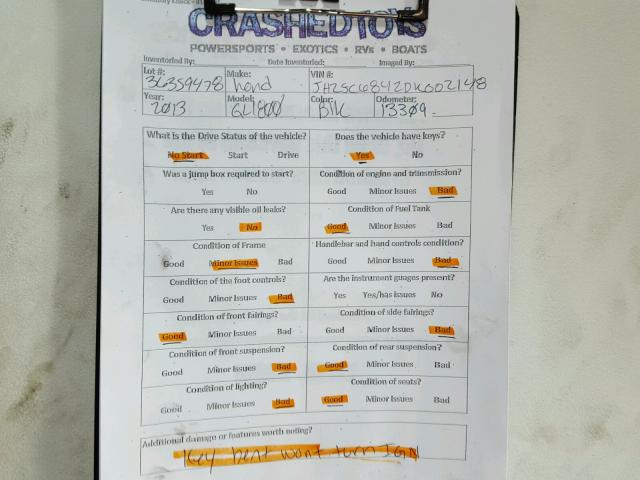 CRASHEDTOYS
POWERSPORTS • EXOTICS • RVs • BOATS
Inventoried By: Date Inventoried: Imaged By:
Lot #: Make: VIN #:
36359478 hond JH2SC6842DK002148
Year: Model: Color: Odometer:
2013 GL1800 Blk 13309
What is the Drive Status of the vehicle? Does the vehicle have keys?
No Start Start Drive Yes No
Was a jump box required to start? Condition of engine and trinsmission?
Yes No Good Minor Issues Bad
Are there any visible oil leaks? Condition of Fuel Tank
Yes No Good Minor Issues Bad
Condition of Frame Handlebar and hand controls condition?
Good Minor Issues Bad Good Minor Issues Bad
Condition of the foot controls? Are the instrument guages present?
Good Minor Issues Bad Yes Yes/has issues No
Condition of front fairings? Condition of side fairings?
Good Minor Issues Bad Good Minor Issues Bad
Condition of front suspension? Condition of rear suspension?
Good Minor Issues Bad Good Minor Issues Bad
Condition of lighting? Condition of seats?
Good Minor Issues Bad Good Minor Issues Bad
Additional damage or features worth noting?
Key bent wont turn IGN